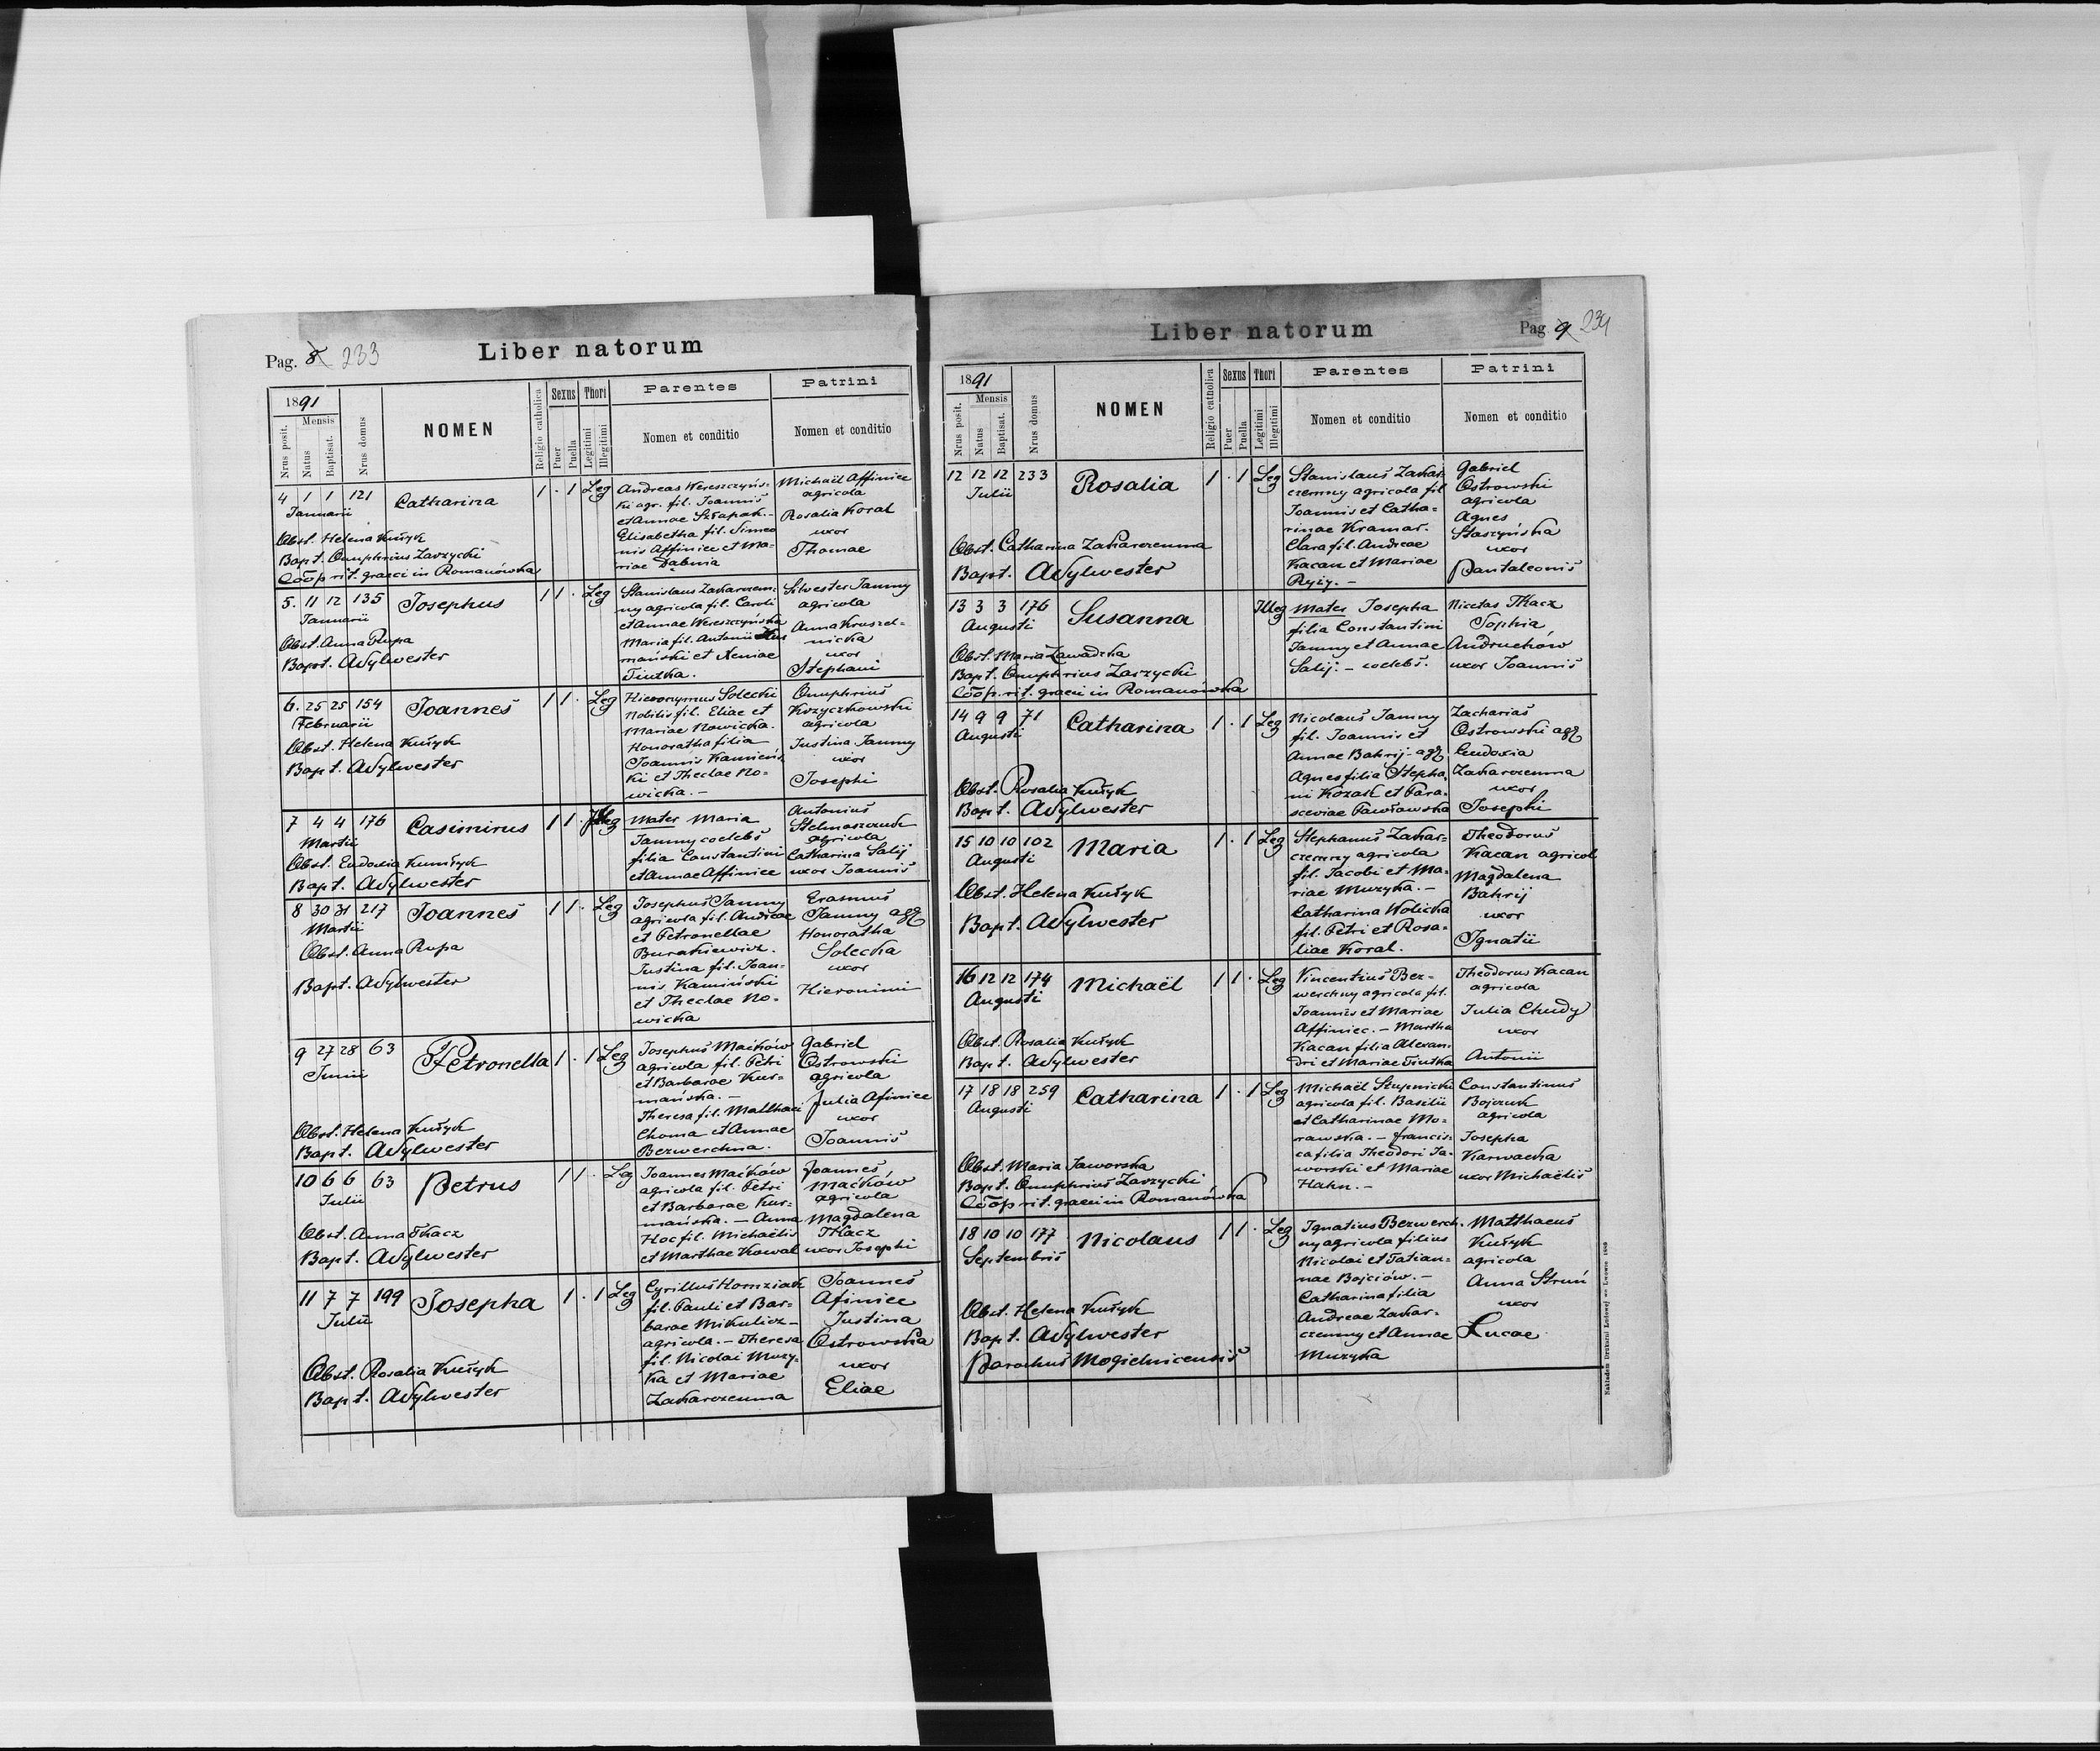 Pag. 8 233
Liber natorum
1891
Mensis
Nrus posit.
Natus
Baptisat.
Nrus domus
NOMEN
Religio catholica
Sexus
Puer
Puella
Thori
Legitimi
Illegitimi
Parentes
Nomen et conditio
Patrini
Nomen et conditio
4 1 1 121 Catharina 1 · 1 Leg
Januarii
Obst. Helena Kułyk
Bapt. Onuphrius Zarzycki
Coop rit. graeci in Romanówka
Andreas Wereszczyńs-
ki agr. fil. Joannis
et Annae Szłapak.-
Elisabetha fil. Simeo
nis Affiniec et Ma-
riae Dąbnia
Michaël Affiniec
agricola
Rosalia Koral
uxor
Thomae
5. 11 12 135 Josephus 1 1 · Leg
Januarii
Obst. Anna Rupa
Bapt. ASylwester
Stanislaus Zaharczem-
ny agricola fil. Caroli
et Annae Wereszczyńska
Maria fil. Antonii Kur
mański et Xeniae
Tiutka.
Silvester Jamny
agricola
Anna Kruszel-
nicka
uxor
Stephani
6. 25 25 154 Joannes 1 1 · Leg
Februarii
Obst. Helena Kułyk
Bapt. ASylwester
Hieronymus Solecki
Nobilis fil. Eliae et
Mariae Nowicka.
Honoratha filia
Joannis Kamińs
ki et Theclae No-
wicka.-
Onuphrius
Kozyczkowski
agricola
Justina Jamny
uxor
Josephi
7 4 4 176 Casimirus 1 1 · Illeg
Martii
Obst. Eudoxia Kumłyk
Bapt. ASylwester
Mater Maria
Jamny coelebs
filia Constantini
et Annae Affiniec
Antonius
Stelmaszczuk
agricola
Catharina Salij
uxor Joannis
8 30 31 217 Joannes 1 1 · Leg
Martii
Obst. Anna Rupa
Bapt. ASylwester
Josephus Jamny
agricola fil. Andreae
et Petronellae
Burakiewicz.
Justina fil. Joan-
nis Kamiński
et Theclae No-
wicka
Erasmus
Jamny agr
Honoratha
Solecka
uxor
Hieronimi
9 27 28 63 Petronella 1 · 1 Leg
Junii
Obst. Helena Kułyk
Bapt. ASylwester
Josephus Maćków
agricola fil. Petri
et Barbarae Kur-
mańska.-
Theresa fil. Matthaei
Choma et Annae
Bezwerchna.
Gabriel
Ostrowski
agricola
Julia Afiniec
uxor
Joannis
10 6 6 63 Petrus 1 1 · Leg
Julii
Obst. Anna Tkacz
Bapt. ASylwester
Joannes Maćków
agricola fil. Petri
et Barbarae Kur-
mańska. - Anna
Hoc fil. Michaëlis
et Marthae Kowal
Joannes
Maćków
agricola
Magdalena
Tkacz
uxor Josephi
11 7 7 199 Josepha 1 · 1 Leg
Julii
Obst. Rosalia Kułyk
Bapt. ASylwester
Cyrillus Kornziak
fil. Pauli et Bar-
barae Mikulicz-
agricola. - Theresa
fil. Nicolai Muzy-
ka et Mariae
Zaharczemna
Joannes
Afiniec
Justina
Ostrowska
uxor
Eliae
Liber natorum
Pag 9 234
1891
Mensis
Nrus posit.
Natus
Baptisat.
Nrus domus
NOMEN
Religio catholica
Sexus
Puer
Puella
Thori
Legitimi
Illegitimi
Parentes
Nomen et conditio
Patrini
Nomen et conditio
12 12 12 233 Rosalia 1 · 1 Leg
Julii
Obst. Catharina Zaharczemna
Bapt. ASylwester
Stanislaus Zahar-
czemny agricola fil
Joannis et Catha-
rinae Kramar.
Clara fil. Andreae
Kacan et Mariae
Ryży.-
Gabriel
Ostrowski
agricola
Agnes
Staszyńska
uxor
Pantaleonis
13 3 3 176 Susanna Illeg
Augusti
Obst. Maria Zawadzka
Bapt. Onuphrius Zarzycki
Coop. rit. graeci in Romanówka
Mater Josepha
filia Constantini
Jamny et Annae
Salij. - coelebs.
Nicetas Tkacz
Sophia
Andruchów
uxor Joannis
14 9 9 71 Catharina 1 · 1 Leg
Augusti
Obst. Rosalia Kułyk
Bapt. ASylwester
Nicolaus Jamny
fil. Joannis et
Annae Bahrij - agr
Agnes filia Stepha-
ni Kozak et Para-
sceviae Pawławska
Zacharias
Ostrowski agr
Eudoxia
Zaharczemna
uxor
Josephi
15 10 10 102 Maria 1 · 1 Leg
Augusti
Obst. Helena Kułyk
Bapt. ASylwester
Stephanus Zahar-
czemny agricola
fil. Jacobi et Ma-
riae Muzyka.-
Catharina Wolicka
fil. Petri et Rosa-
liae Koral.
Theodorus
Kacan agricol
Magdalena
Bahrij
uxor
Ignatii
16 12 12 174 Michaël 1 1 · Leg
Augusti
Obst. Rosalia Kułyk
Bapt. ASylwester
Vincentius Bez-
werchny agricola fil.
Joannis et Mariae
Affiniec. - Martha
Kacan filia Alexan-
dri et Mariae Tiutka
Theodorus Kacan
agricola
Julia Chudy
uxor
Antonii
17 18 18 259 Catharina 1 · 1 Leg
Augusti
Obst. Maria Jaworska
Bapt. Onuphrius Zarzycki
Coop rit. graeci in Romanówka
Michaël Szupnicki
agricola fil. Basilii
et Catharinae Mo-
rawska. - Francis-
ca filia Theodori Ja-
worski et Mariae
Hahn.-
Constantinus
Bojczuk
agricola
Josepha
Karwacka
uxor Michaëlis
18 10 10 177 Nicolaus 1 1 · Leg
Septembris
Obst. Helena Kułyk
Bapt. ASylwester
Parochus Mogielnicensis
Ignatius Bezwerch-
ny agricola filius
Nicolai et Tatian-
nae Bojciów.-
Catharina filia
Andreae Zahar-
czemny et Annae
Muzyka
Matthaeus
Kułyk
agricola
Anna Struń
uxor
Lucae
Nakładem Drukarni Ludowej we Lwowie